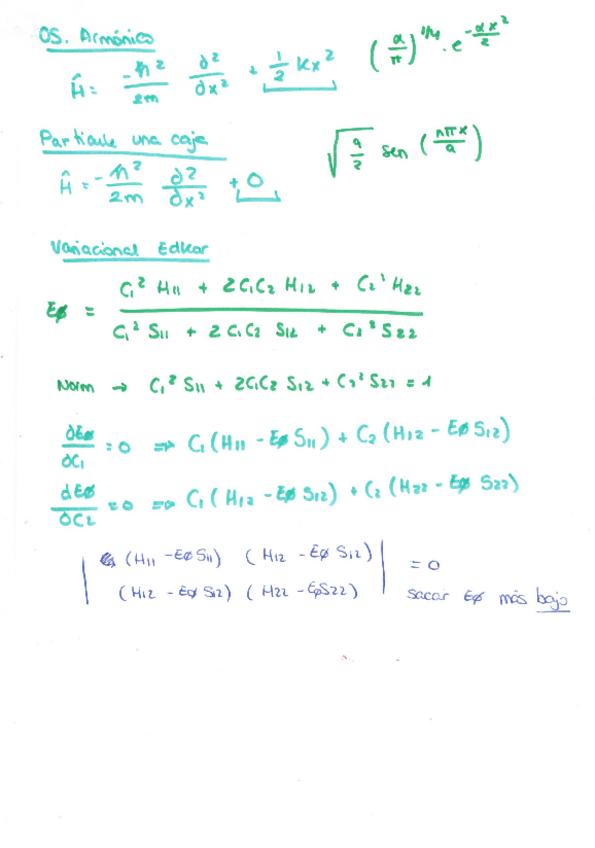 OS. Armónico
Ĥ = -ħ²/2m ∂²/∂x² + 1/2 kx²   (α/π)^1/4 · e^(-αx²/2)
Particula una caja
Ĥ = -ħ²/2m ∂²/∂x² + 0   √(a/2) sen (nπx/a)
Variacional Edkar
Eø = (C₁² H₁₁ + 2C₁C₂ H₁₂ + C₂² H₂₂) / (C₁² S₁₁ + 2C₁C₂ S₁₂ + C₂² S₂₂)
Norm → C₁² S₁₁ + 2C₁C₂ S₁₂ + C₂² S₂₂ = 1
∂Eø/∂C₁ = 0 ⇒ C₁ (H₁₁ - Eø S₁₁) + C₂ (H₁₂ - Eø S₁₂)
∂Eø/∂C₂ = 0 ⇒ C₁ (H₁₂ - Eø S₁₂) + C₂ (H₂₂ - Eø S₂₂)
| (H₁₁ - Eø S₁₁) (H₁₂ - Eø S₁₂) | = 0
| (H₁₂ - Eø S₁₂) (H₂₂ - Eø S₂₂) | sacar Eø más bajo